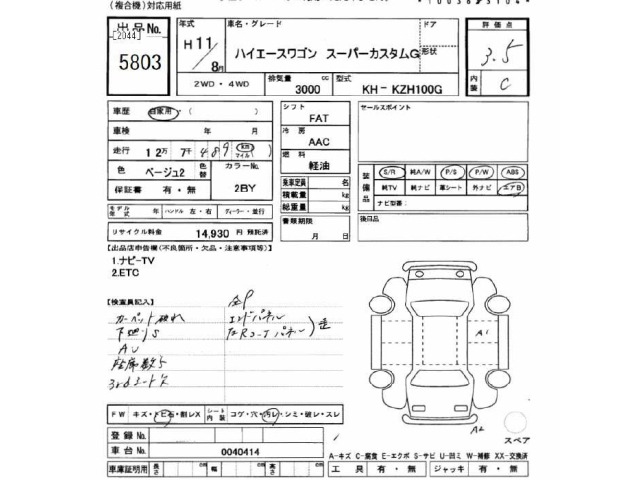 (複合機)対応用紙
出品No. 年式 車名・グレード ドア 評価点
[2044]
5803 H11/8月 ハイエースワゴン スーパーカスタムG 形状 3.5
2WD・4WD 排気量 3000 cc 型式 KH- KZH100G 内装 C
車歴 自家用 ( ) シフト FAT セールスポイント
車検 年 月 冷房 AAC
走行 12万 7千 489 km マイル 燃料 軽油
色 ベージュ2 色替 カラーNo. 2BY
保証書 有・無
乗車定員 名
積載量 kg
総重量 kg
装備品 S/R 純A/W P/S P/W ABS
純TV 純ナビ 革シート 外ナビ エアB
ナビ型番:
モデル年式 年 ハンドル 左・右 ディーラー・並行
書類期限 月 日
後日品
リサイクル料金 14,930 円 預託済
【出品店申告欄(不良箇所・欠品・注意事項等)】
1.ナビ-TV
2.ETC
【検査員記入】
カーペット破れ
AU
座席数5
エンドパネル
A1
A2
スペア
FW キズ・ヒ石・割レX シート内装 コゲ・穴・汚レ・シミ・破レ・スレ
登録No.
車台No. 0040414
A-キズ C-腐食 E-エクボ S-サビ U-凹ミ W-補修 XX-交換済
車庫証明用 長さ cm 幅 cm 高さ cm 工具 有・無 ジャッキ 有・無